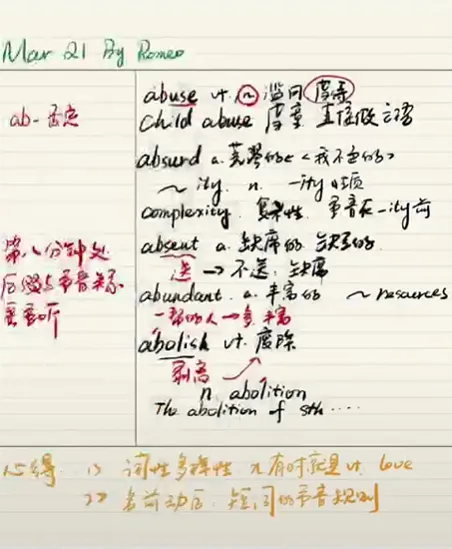 Mar 21 By Romeo
abuse vt. n 滥用 虐待
ab- 否定
child abuse 虐童 直接做主语
absurd a. 荒谬的
~ ity. n. -ity 后缀
complexity. 复杂性. 重音在-ity前
absent a. 缺席的 缺乏的
第八分钟处
送 → 不送. 缺席
后缀与重音关系
abundant. a. 丰富的 ~ resources
重要听
一帮的人 → 多 丰富
abolish vt. 废除
剥离
n abolition
The abolition of sth ....
心得 1> 词性多样性 n有时就是vt. love
2> 名前动后. 短词的重音规则